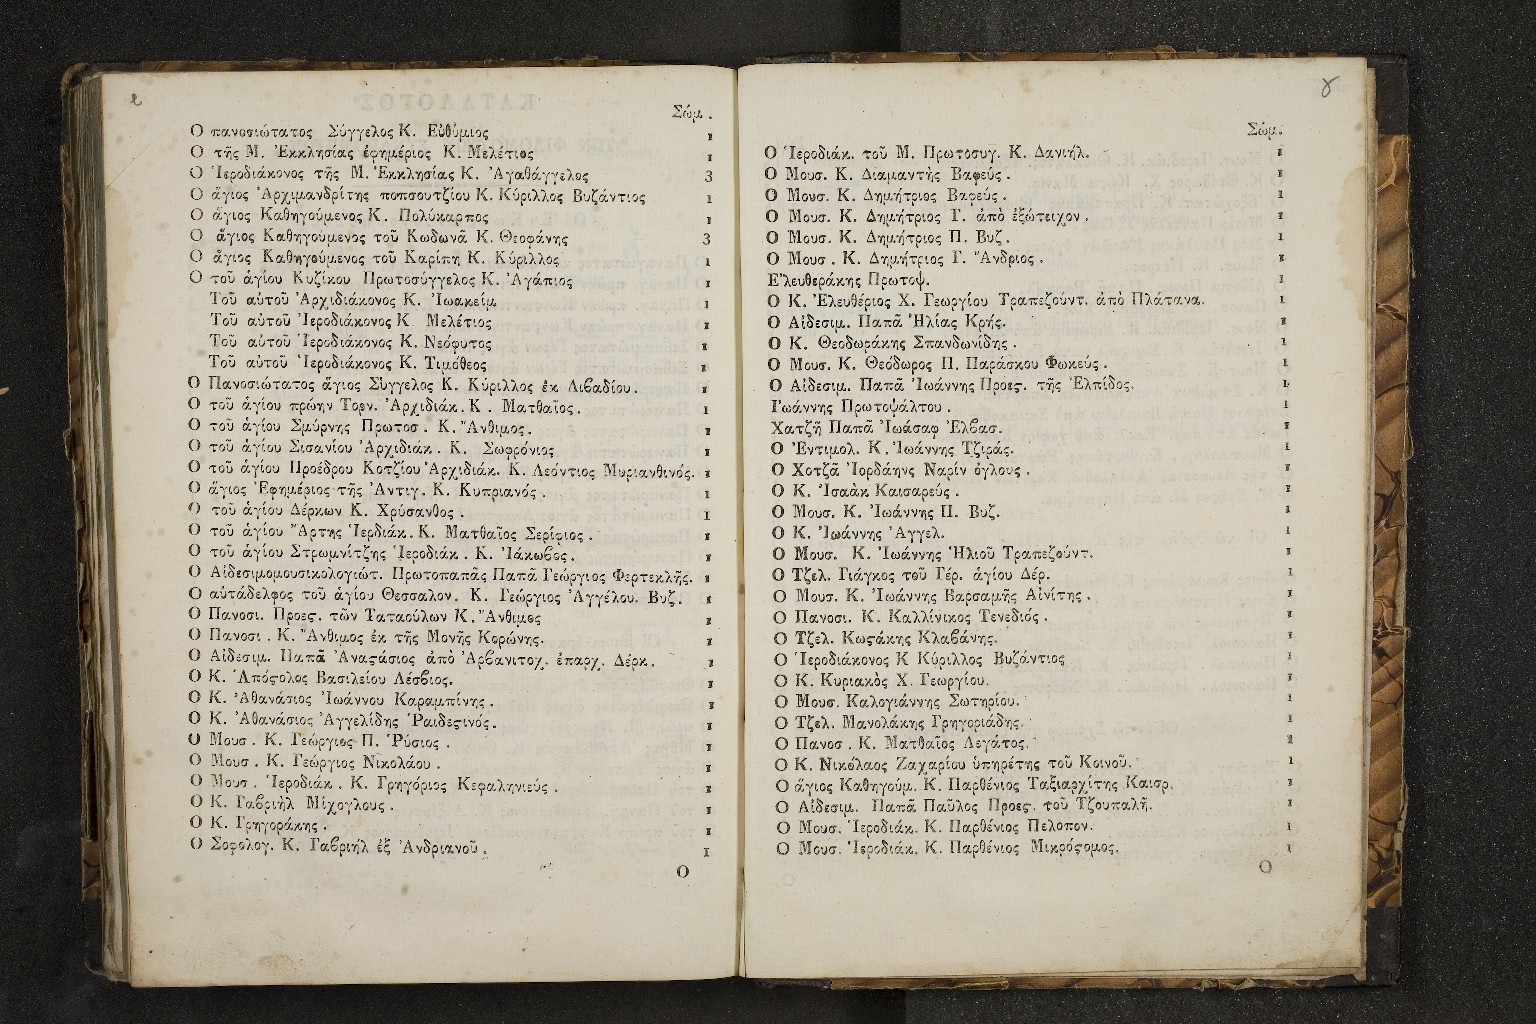 Σώμ.
Ο πανοσιώτατος Σύγγελος Κ. Εὐθύμιος 1
Ο τῆς Μ. Ἐκκλησίας ἐφημέριος Κ. Μελέτιος 1
Ο Ἱεροδιάκονος τῆς Μ. Ἐκκλησίας Κ. Ἀγαθάγγελος 3
Ο ἅγιος Ἀρχιμανδρίτης ποπσουτζίου Κ. Κύριλλος Βυζάντιος 1
Ο ἅγιος Καθηγούμενος Κ. Πολύκαρπος 1
Ο ἅγιος Καθηγούμενος τοῦ Κωδωνᾶ Κ. Θεοφάνης 3
Ο ἅγιος Καθηγούμενος τοῦ Καρίπη Κ. Κύριλλος 1
Ο τοῦ ἁγίου Κυζίκου Πρωτοσύγγελος Κ. Ἀγάπιος 1
Τοῦ αὐτοῦ Ἀρχιδιάκονος Κ. Ἰωακείμ 1
Τοῦ αὐτοῦ Ἱεροδιάκονος Κ Μελέτιος 1
Τοῦ αὐτοῦ Ἱεροδιάκονος Κ. Νεόφυτος 1
Τοῦ αὐτοῦ Ἱεροδιάκονος Κ. Τιμόθεος 1
Ο Πανοσιώτατος ἅγιος Σύγγελος Κ. Κύριλλος ἐκ Λιβαδίου. 1
Ο τοῦ ἁγίου πρώην Τορν. Ἀρχιδιάκ. Κ. Ματθαῖος. 1
Ο τοῦ ἁγίου Σμύρνης Πρωτοσ. Κ. Ἄνθιμος. 1
Ο τοῦ ἁγίου Σισανίου Ἀρχιδιάκ. Κ. Σωφρόνιος 1
Ο τοῦ ἁγίου Προέδρου Κοτζίου Ἀρχιδιάκ. Κ. Λεόντιος Μυριανθινός. 1
Ο ἅγιος Ἐφημέριος τῆς Ἀντιγ. Κ. Κυπριανός. 1
Ο τοῦ ἁγίου Δέρκων Κ. Χρύσανθος. 1
Ο τοῦ ἁγίου Ἄρτης Ἱερδιάκ. Κ. Ματθαῖος Σερίφιος. 1
Ο τοῦ ἁγίου Στρωμνίτζης Ἱεροδιάκ. Κ. Ἰάκωβος. 1
Ο Αἰδεσιμομουσικολογιώτ. Πρωτοπαπᾶς Παπᾶ Γεώργιος Φερτεκλῆς. 1
Ο αὐτάδελφος τοῦ ἁγίου Θεσσαλον. Κ. Γεώργιος Ἀγγέλου. Βυζ. 1
Ο Πανοσι. Προεϛ. τῶν Ταταούλων Κ. Ἄνθιμος 1
Ο Πανοσι. Κ. Ἄνθιμος ἐκ τῆς Μονῆς Κορώνης. 1
Ο Αἰδεσιμ. Παπᾶ Ἀναϛάσιος ἀπὸ Ἀρβανιτοχ. ἐπαρχ. Δέρκ. 1
Ο Κ. Ἀπόϛολος Βασιλείου Λέσβιος. 1
Ο Κ. Ἀθανάσιος Ἰωάννου Καραμπίνης. 1
Ο Κ. Ἀθανάσιος Ἀγγελίδης Ῥαιδεϛινός. 1
Ο Μουσ. Κ. Γεώργιος Π. Ῥύσιος. 1
Ο Μουσ. Κ. Γεώργιος Νικολάου. 1
Ο Μουσ. Ἱεροδιάκ. Κ. Γρηγόριος Κεφαληνιεύς. 1
Ο Κ. Γαβριὴλ Μίχογλους. 1
Ο Κ. Γρηγοράκης. 1
Ο Σοφολογ. Κ. Γαβριήλ ἐξ Ἀνδριανοῦ. 1
Ο
Σώμ.
Ο Ἱεροδιάκ. τοῦ Μ. Πρωτοσυγ. Κ. Δανιήλ. 1
Ο Μουσ. Κ. Διαμαντῆς Βαφεύς. 1
Ο Μουσ. Κ. Δημήτριος Βαφεύς. 1
Ο Μουσ. Κ. Δημήτριος Γ. ἀπὸ ἐξώτειχον. 1
Ο Μουσ. Κ. Δημήτριος Π. Βυζ. 1
Ο Μουσ. Κ. Δημήτριος Γ. Ἄνδριος. 1
Ἐλευθεράκης Πρωτοψ. 1
Ο Κ. Ἐλευθέριος Χ. Γεωργίου Τραπεζούντ. ἀπὸ Πλάτανα. 1
Ο Αἰδεσιμ. Παπᾶ Ἠλίας Κρής. 1
Ο Κ. Θεοδωράκης Σπανδωνίδης. 1
Ο Μουσ. Κ. Θεόδωρος Π. Παράσκου Φωκεύς. 1
Ο Αἰδεσιμ. Παπᾶ Ἰωάννης Προεϛ. τῆς Ἐλπίδος. 1
Ἰωάννης Πρωτοψάλτου. 1
Χατζῆ Παπᾶ Ἰωάσαφ Ἐλβασ. 1
Ο Ἐντιμολ. Κ. Ἰωάννης Τζιράς. 1
Ο Χοτζᾶ Ἰορδάηνς Ναρίν ὀγλους. 1
Ο Κ. Ἰσαὰκ Καισαρεύς. 1
Ο Μουσ. Κ. Ἰωάννης Π. Βυζ. 1
Ο Κ. Ἰωάννης Ἀγγελ. 1
Ο Μουσ. Κ. Ἰωάννης Ἠλιοῦ Τραπεζούντ. 1
Ο Τζελ. Γιάγκος τοῦ Γέρ. ἁγίου Δέρ. 1
Ο Μουσ. Κ. Ἰωάννης Βαρσαμῆς Αἰνίτης. 1
Ο Πανοσι. Κ. Καλλίνικος Τενεδιός. 1
Ο Τζελ. Κωϛάκης Κλαβάνης. 1
Ο Ἱεροδιάκονος Κ Κύριλλος Βυζάντιος 1
Ο Κ. Κυριακὸς Χ. Γεωργίου. 1
Ο Μουσ. Καλογιάννης Σωτηρίου. 1
Ο Τζελ. Μανολάκης Γρηγοριάδης. 1
Ο Πανοσ. Κ. Ματθαῖος Λεγάτος. 1
Ο Κ. Νικόλαος Ζαχαρίου ὑπηρέτης τοῦ Κοινοῦ. 1
Ο ἅγιος Καθηγούμ. Κ. Παρθένιος Ταξιαρχίτης Καισρ. 1
Ο Αἰδεσιμ. Παπᾶ Παῦλος Προεϛ. τοῦ Τζουπαλῆ. 1
Ο Μουσ. Ἱεροδιάκ. Κ. Παρθένιος Πελοπον. 1
Ο Μουσ. Ἱεροδιάκ. Κ. Παρθένιος Μικρόϛομος. 1
Ο